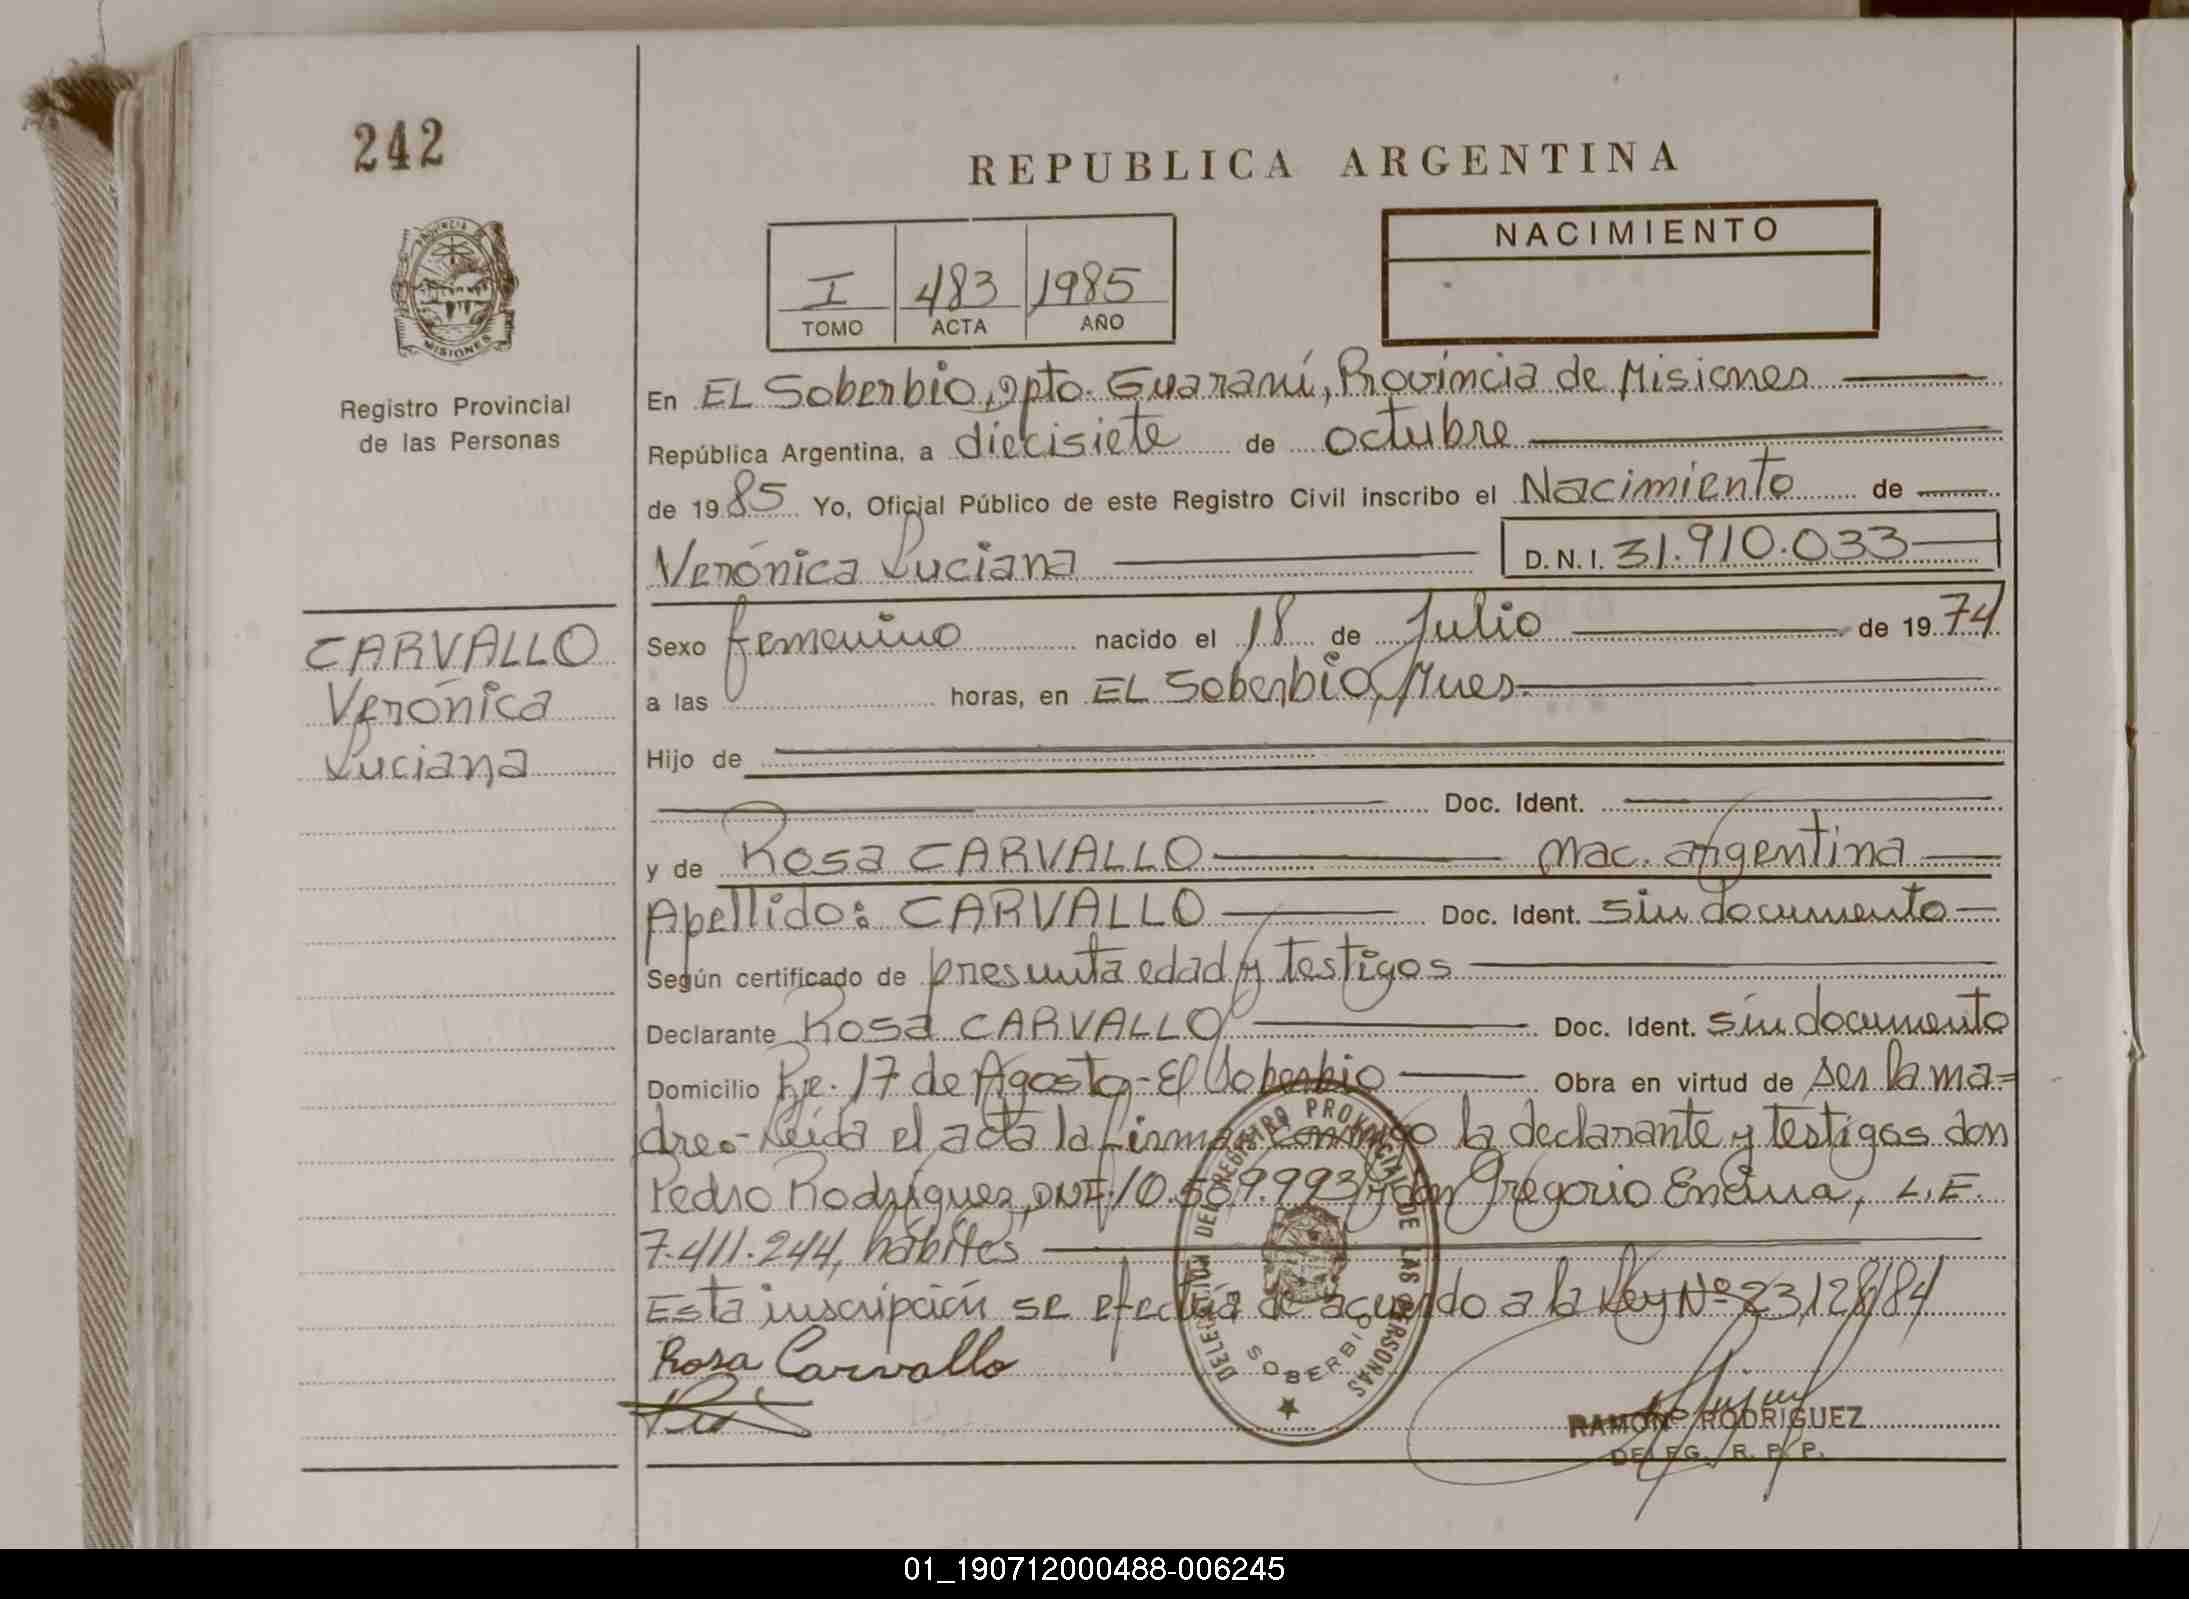 242
REPUBLICA ARGENTINA
NACIMIENTO
I 483 1985
TOMO ACTA AÑO
PROVINCIA DE
MISIONES
Registro Provincial
de las Personas
CARVALLO
Verónica
Luciana
En EL Soberbio, Dpto. Guaraní, Provincia de Misiones
República Argentina, a diecisiete de octubre
de 1985 Yo, Oficial Público de este Registro Civil inscribo el Nacimiento de
Verónica Luciana D.N.I. 31.910.033
Sexo femenino nacido el 18 de Julio de 1974
a las horas, en EL Soberbio, Mnes
Hijo de
Doc. Ident.
y de Rosa CARVALLO nac. argentina
Apellido: CARVALLO Doc. Ident. sin documento
Según certificado de presunta edad y testigos
Declarante Rosa CARVALLO Doc. Ident. sin documento
Domicilio Pje. 17 de Agosto - El Soberbio Obra en virtud de ser la ma=
dre.- Leída el acta la firman conmigo la declarante y testigos don
Pedro Rodríguez, DNI. 10.569.993 y don Gregorio Encina, L.E.
7.411.244, hábiles
Esta inscripción se efectúa de acuerdo a la Ley Nº 23.128/84
Rosa Carvallo
DELEGACION DEL REGISTRO PROVINCIAL DE LAS PERSONAS
SOBERBIO
RAMON RODRIGUEZ
DELEG. R. P. P.
01_190712000488-006245